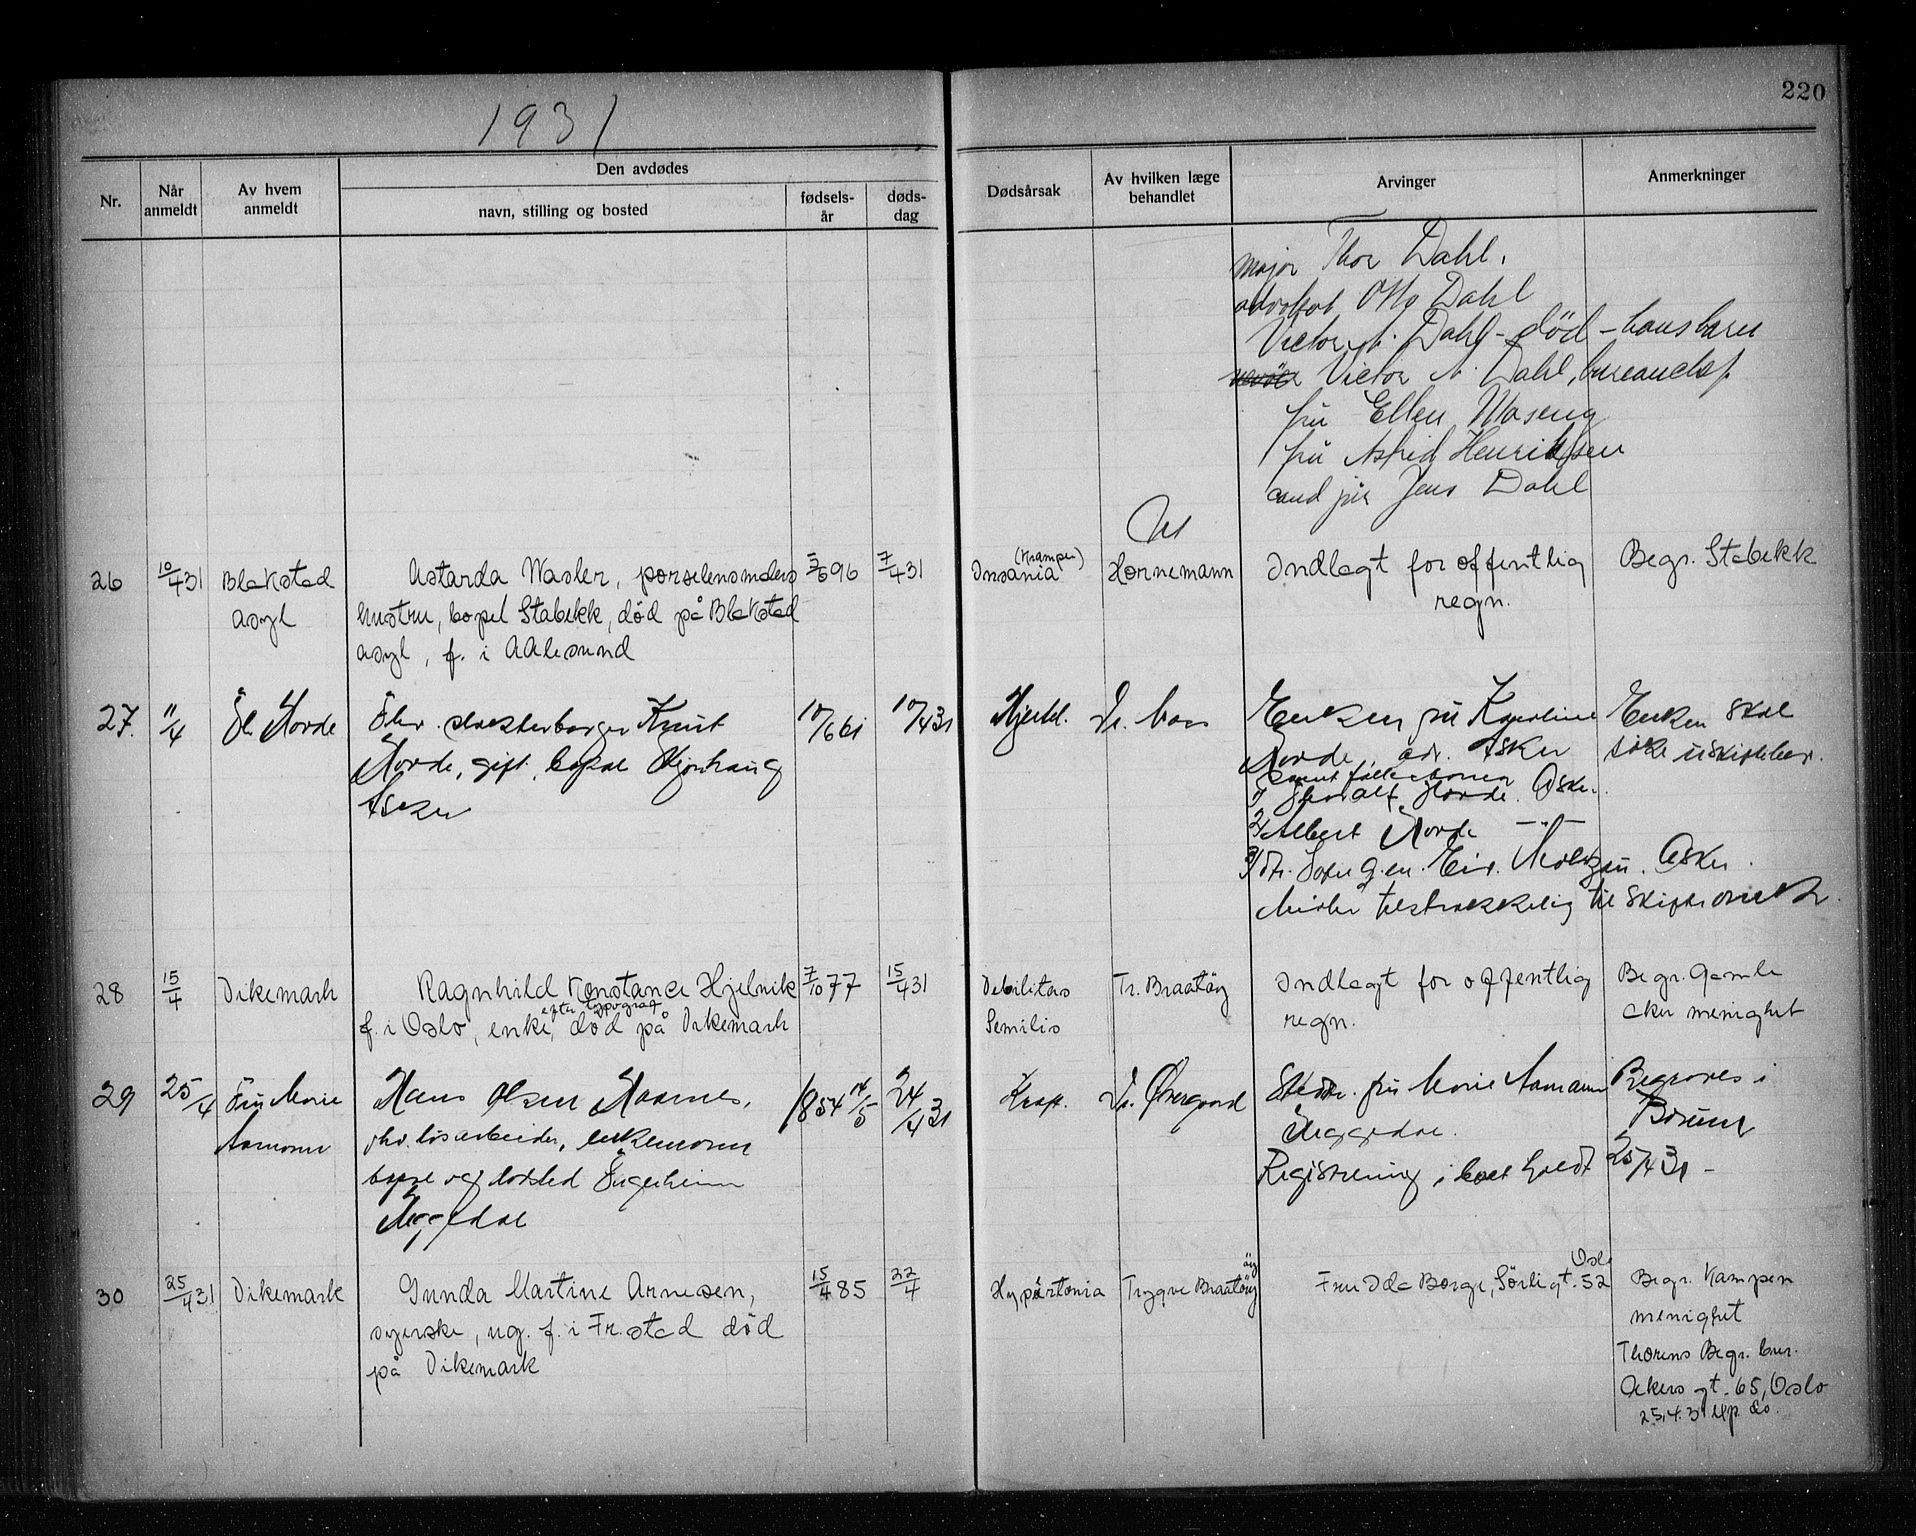 1931
220
Nr.
Når anmeldt
Av hvem anmeldt
Den avdødes
navn, stilling og bosted
fødsels-år
døds-dag
Dødsårsak
Av hvilken læge behandlet
Arvinger
Anmerkninger
major Thor Dahl.
advokat Otto Dahl
Victor A. Dahl - død - hans barn
Victor A. Dahl, bureauchef
fru Ellen Waseng
fru Astrid Henriksen
cand jur Jens Dahl
26 10/4 31 Blakstad asyl
Astarda Wasler, porselensmalers
hustru, bopel Stabekk, død på Blakstad
asyl, f. i Aalesund
96 7/4 31
Insania (Kramper)
Hornemann
Indlagt for offentlig
regn.
Begr. Stabekk
27. 11/4 Horde
Fhv. Knut
Horde, gift, bopæl
Asker
10/6 61 10/4 31
Dr.
Enken fru Karoline
Horde, adr. Asker
samt felles barn
1/ Horde. Asker.
2/ Albert Horde — " —
3/ Asker.
tilstrækkelig til skifte
Enken skal
søke uskiftebev.
28 15/4 Dikemark
Ragnhild Konstance Hjelvik
f. i Oslo, enke efter typograf, død på Dikemark
7/10 77 15/4 31
Debilitas
Semilis
Tr. Braatöy
Indlagt for offentlig
regn.
Begr. Gamle
Aker menighet
29 25/4 Fru Marie
Aamann
Hans Olsen
fhv. løsarbeider, enkemann
bopæl og dødssted
Heggedal
1854 14/5 24/4 31
Dr. Overgaard
fru Marie Aamann
Heggedal.
Registrering i boet holdt 25/4 31 -
Begraves i
Bærum
30 25/4 31 Dikemark
Gunda Martine Arnesen,
syerske, ug. f. i Fr.stad død
på Dikemark
15/4 85 22/4
Hypertonia
Trygve Braatöy
Fru Ida Borge, Sörligt. 52 Oslo
Begr. Kampen
menighet
Thorens Begr. bur.
Akers gt. 65, Oslo
25.4.31